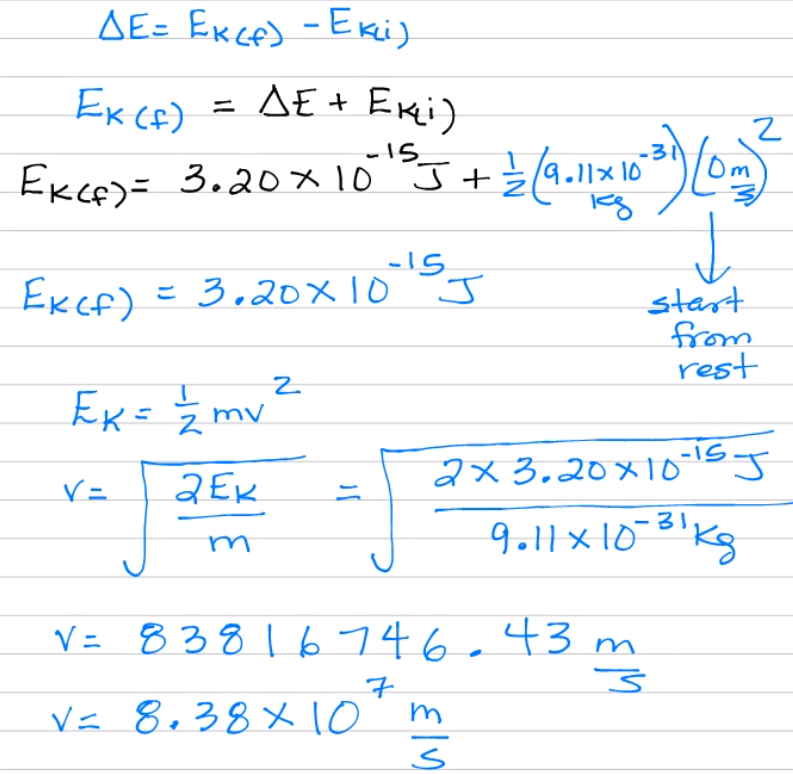 ΔE = E_K(f) - E_K(i)
E_K(f) = ΔE + E_K(i)
E_K(f) = 3.20 × 10^-15 J + 1/2 (9.11 × 10^-31 kg)(0 m/s)^2
↓
E_K(f) = 3.20 × 10^-15 J
start
from
rest
E_K = 1/2 mv^2
v = √(2E_K/m) = √(2 × 3.20 × 10^-15 J / 9.11 × 10^-31 kg)
v = 83816746.43 m/s
v = 8.38 × 10^7 m/s